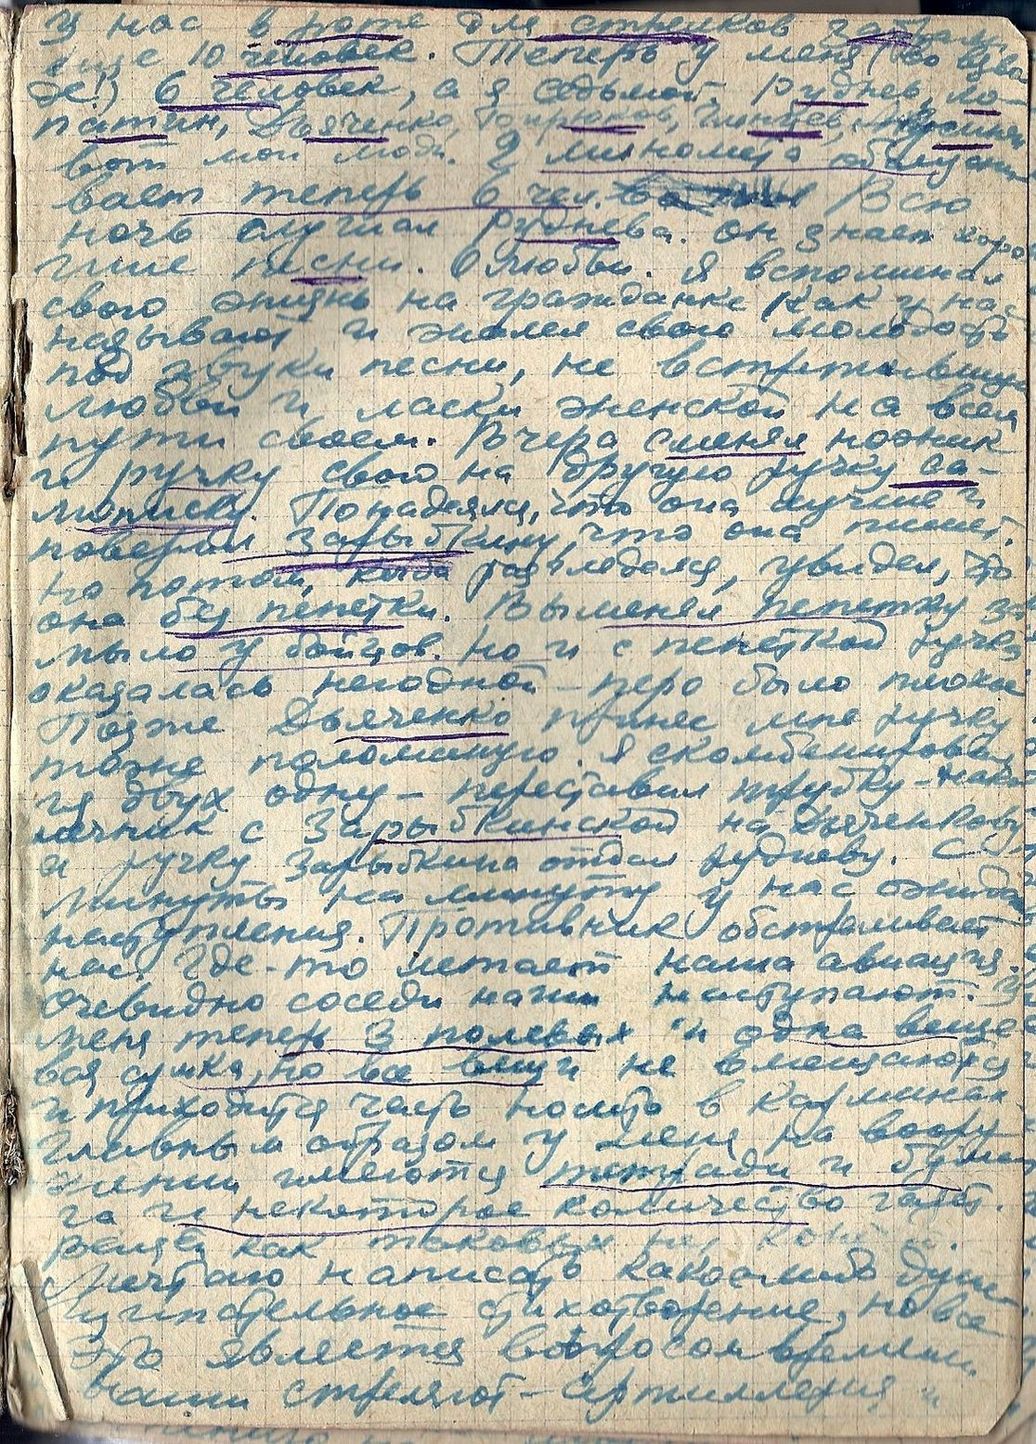 У нас в роте для стрелков забрали
еще 10 человек. Теперь у меня (во взво
де!) 6 человек, а я седьмой. Руднев, Ло-
патин, Дьяченко,
вот мои люди. 2 миномета обслужи
вает теперь 6 чел. Всю
ночь слушал Руднева. Он знает хоро
шие песни. О любви. Я вспоминал
свою жизнь на гражданке как у нас
называют и жалел свою молодость
под звуки песни, не встретившую
любви и ласки женской на всем
пути своем. Вчера сменял ножик
и ручку свою на другую ручку са-
мописку. Понадеялся, что она лучше и
поверил Зарыбкину, что она пишет.
Но потом, когда разгляделся, увидел, что
она без пепетки. Выменял пепетку за
мыло у бойцов. Но и с пепеткой ручка
оказалась негодной – перо было плохим
Позже Дьяченко принес мне ручку
тоже поломанную. Я скомбинировал
из двух одну – переставил трубку-нако
нечник с Зарыбкинской на Дьяченкову,
а ручку Зарыбкина отдал Рудневу. С
минуты на минуту у нас ожида
наступления. Противник обстреливает
нас. Где-то летает наша авиация.
Очевидно соседи наши наступают. У
меня теперь 3 полевых и одна веще
вая сумка, но все вещи не вмещаются
и приходится часть носить в карманах
Главным образом у меня на воору
жении имеются тетради и бума
га и некоторое количество газет.
Вещей как таковых нет
Мечтаю написать какое либо душе
щипательное стихотворение, но все
это является вопросом времени.
Наши стреляют – артиллерия и